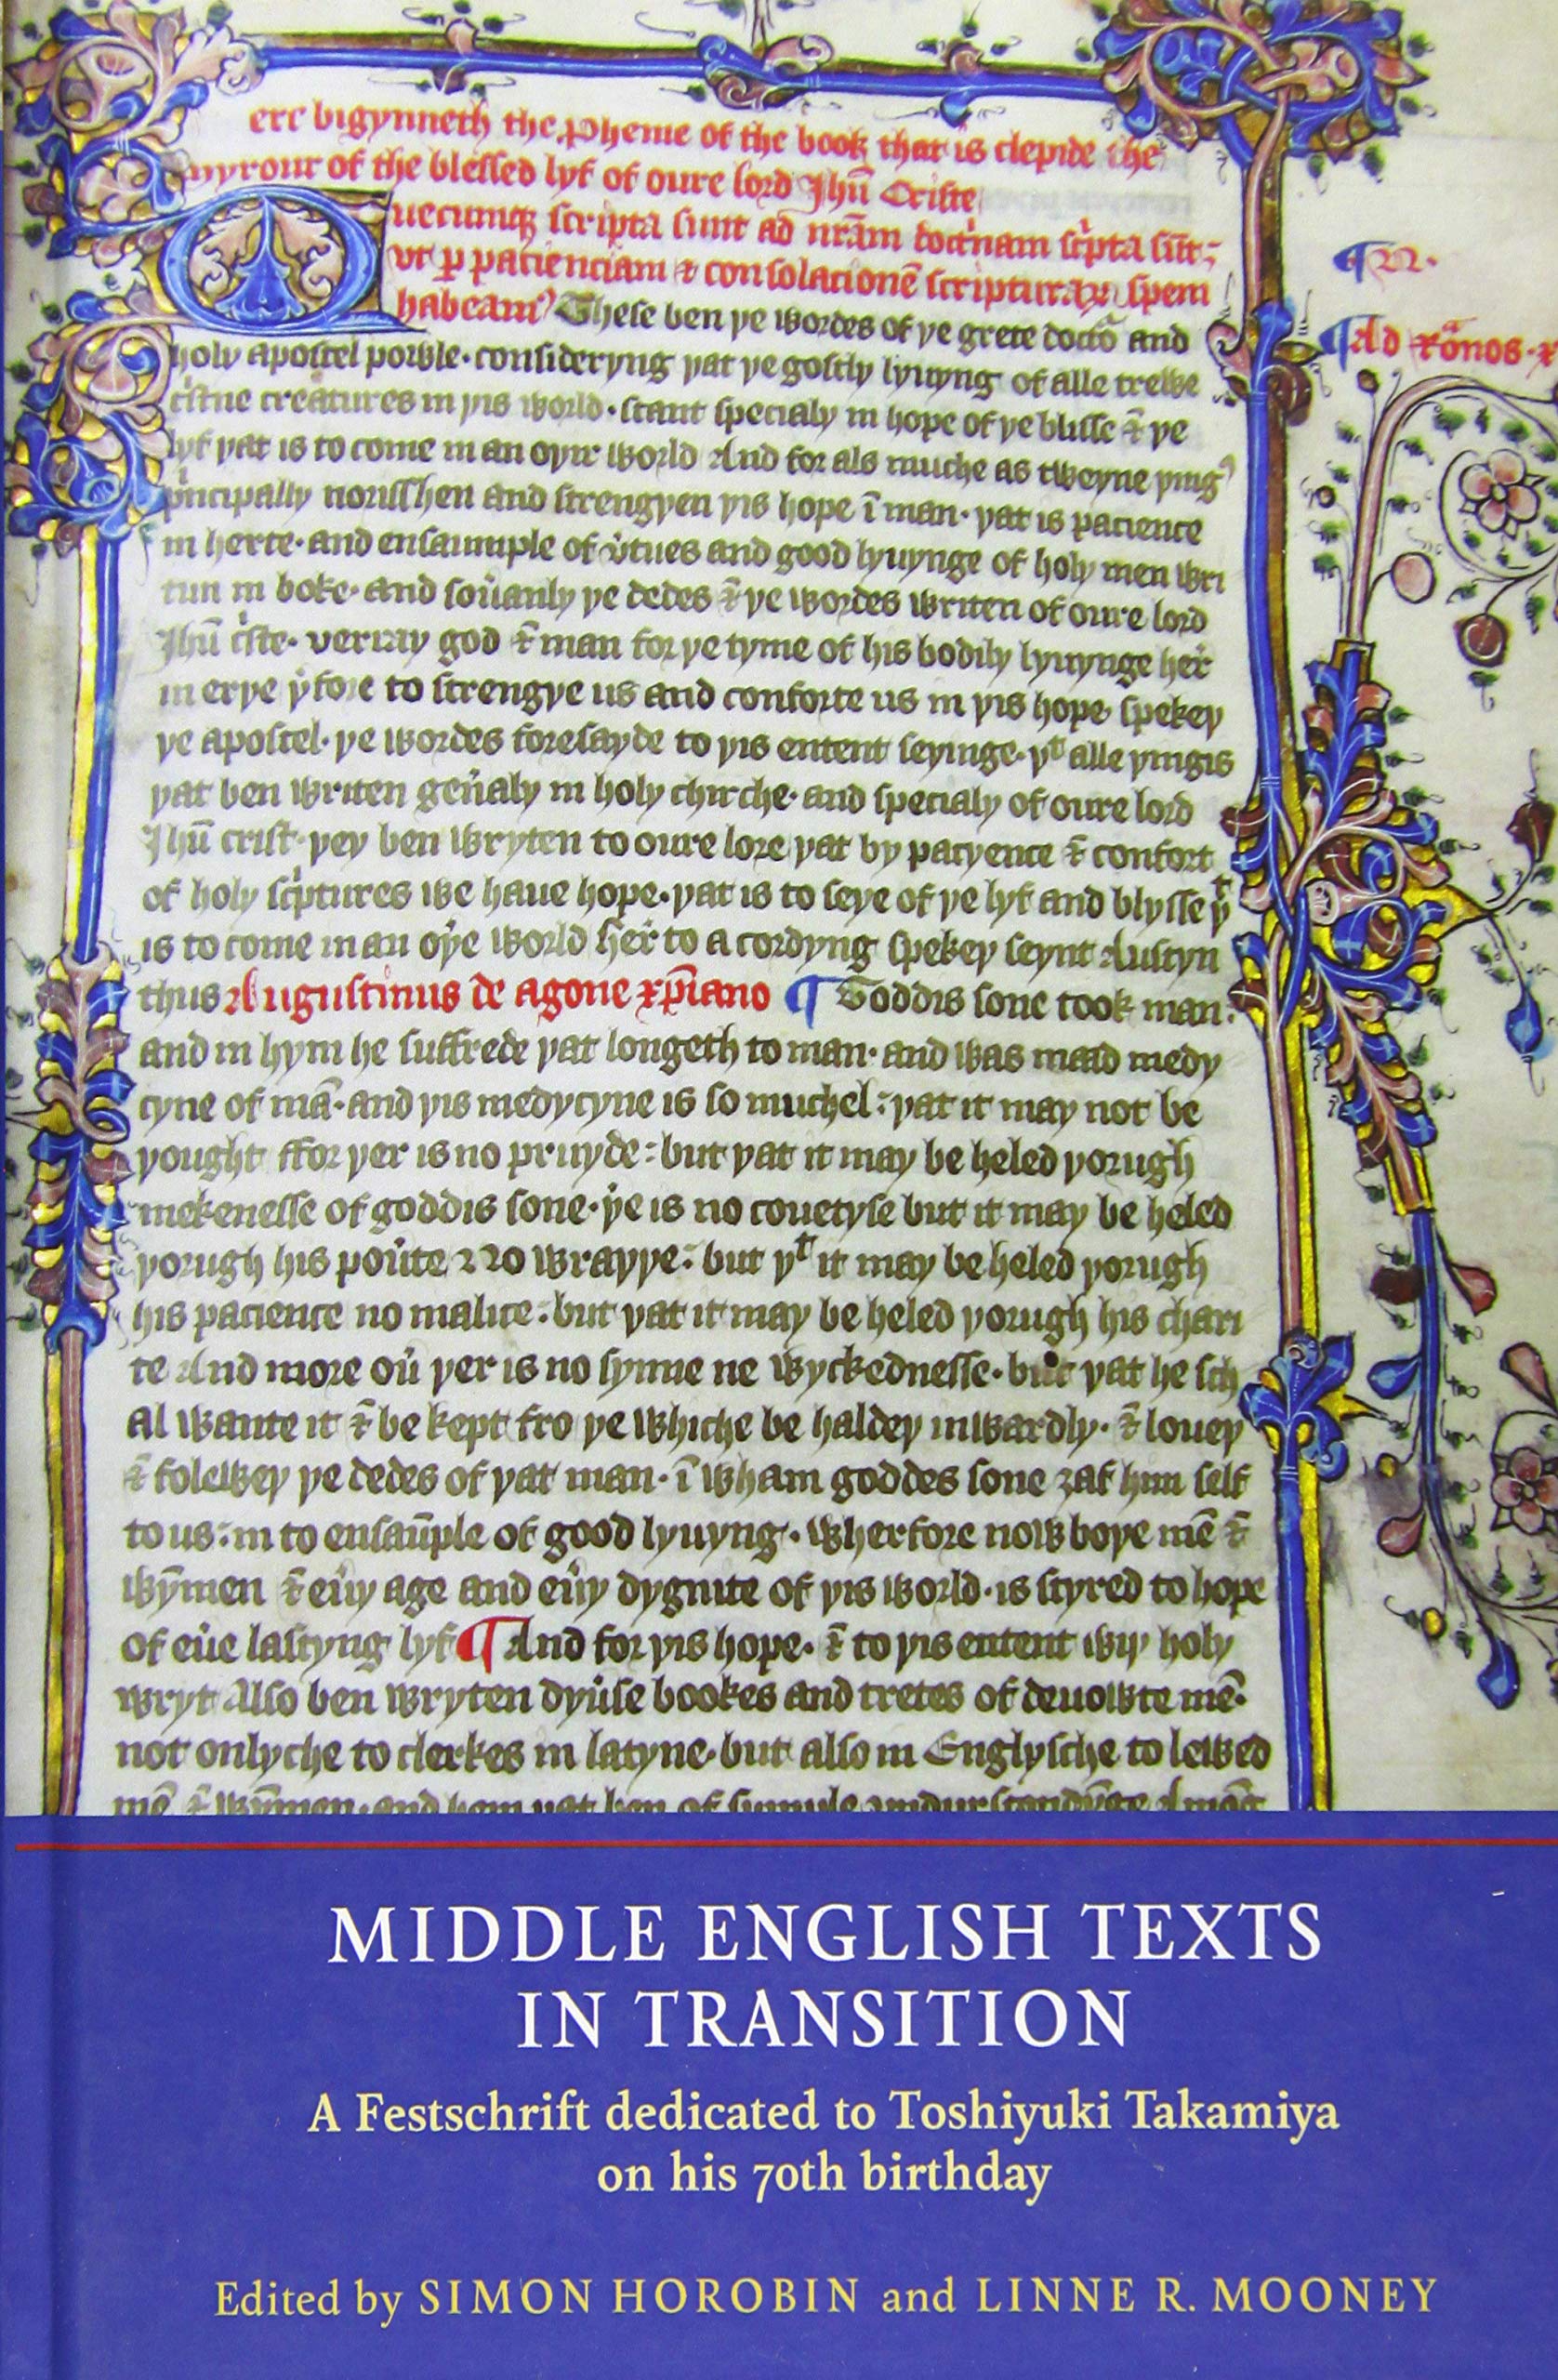 ere bigynneth the pheme of the book that is clepide the
myrour of the blessed lyf of oure lord Jhū Criste
Quecumqꝫ scripta sunt ad nrām doctͥnam scͥpta sūt
vt ꝑ pacienciam ⁊ consolacionē scripturaꝝ spem
habeamꝰ These ben ye wordes of ye grete doctoͬ and
N.
holy apostel powle · consideryng yat ye gostly lyuyng of alle trewe
Ad roᵃnos · x
cͥstne creatures in yis world · stant specialy in hope of ye blisse ⁊ ye
lyf yat is to come in an oyir world And for als muche as tweyne yingꝰ
pͥncipally norisshen and strengyen yis hope ī man · yat is pacience
in herte · and ensaumple of v̓tues and good lyuynge of holy men wri
tun in boke · and sou̓anly ye dedes ⁊ ye wordes writen of oure lord
Jhū cͥste · verray god ⁊ man for ye tyme of his bodily lyuynge her̓
in erye y̓fore to strengye us and conforte us in yis hope spekey
ye apostel · ye wordes foresayde to yis entent seyinge · yᵗ alle yingis
yat ben writen gen̓aly in holy chirche · and specialy of oure lord
Jhū crist · yey ben wryten to oure lore yat by pacyence ⁊ confort
of holy scͥptures we haue hope · yat is to seye of ye lyf and blysse yᵗ
is to come in an oy̓e world her̓ to a cordyng spekey seynt Austyn
thus Augustinus de agone xp̄iano ¶ Goddis sone took man :
and in hym he suffrede yat longeth to man · and was maad medy
cyne of mā · and yis medycyne is so muchel : yat it may not be
yought ffor yer is no pruyde : but yat it may be heled yorugh
mekenesse of goddis sone · y̓e is no couetyse but it may be heled
yorugh his pou̓te ⁊ no wrayye : but yᵗ it may be heled yorugh
his pacience no malice : but yat it may be heled yorugh his chari
te And more ou̓ yer is no synne ne wyckednesse · but yat he sch
al wante it ⁊ be kept fro ye whiche be haldey inwardly · ⁊ louey
⁊ folewey ye dedes of yat man · ī wham goddes sone ȝaf him self
to us : in to ensaūple of good lyuyng · Wherfore now boye mē ⁊
wȳmen ⁊ eu̓y age and eu̓y dygnite of yis world · is styred to hope
of eu̓e lastyng lyf ¶ And for yis hope · ⁊ to yis entent wiy holy
wryt Also ben wryten dyu̓se bookes and tretes of deuowte mē ·
not onlyche to clerkes in latyne · but also in Englysche to lewed
mē ⁊ wȳmen · and hem yat ben of symple vndurstondȳge Amōg
MIDDLE ENGLISH TEXTS
IN TRANSITION
A Festschrift dedicated to Toshiyuki Takamiya
on his 70th birthday
Edited by SIMON HOROBIN and LINNE R. MOONEY